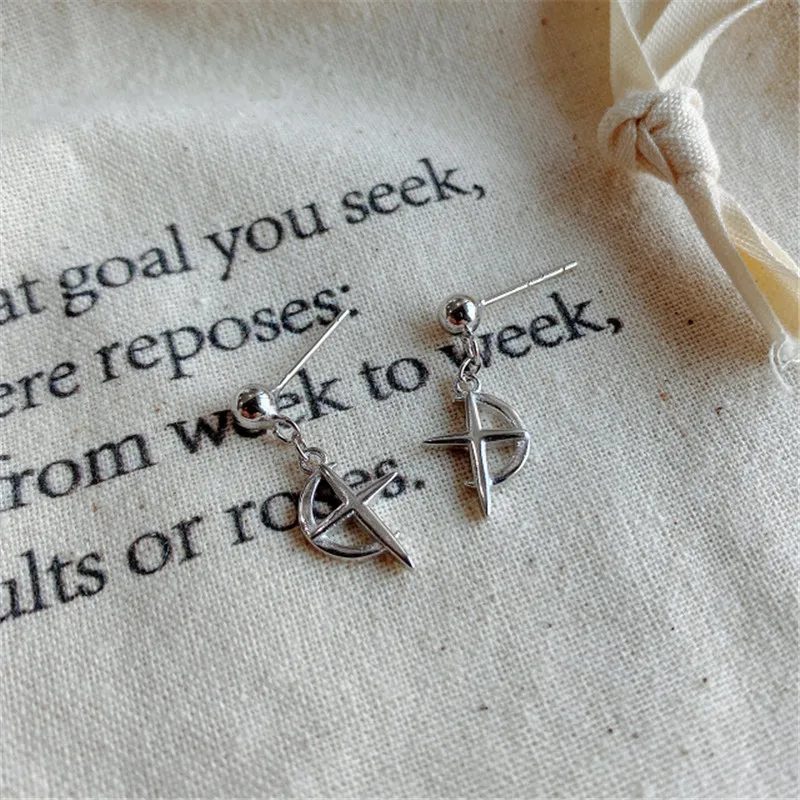 at goal you seek,
ere reposes:
from week to week,
ults or roses.